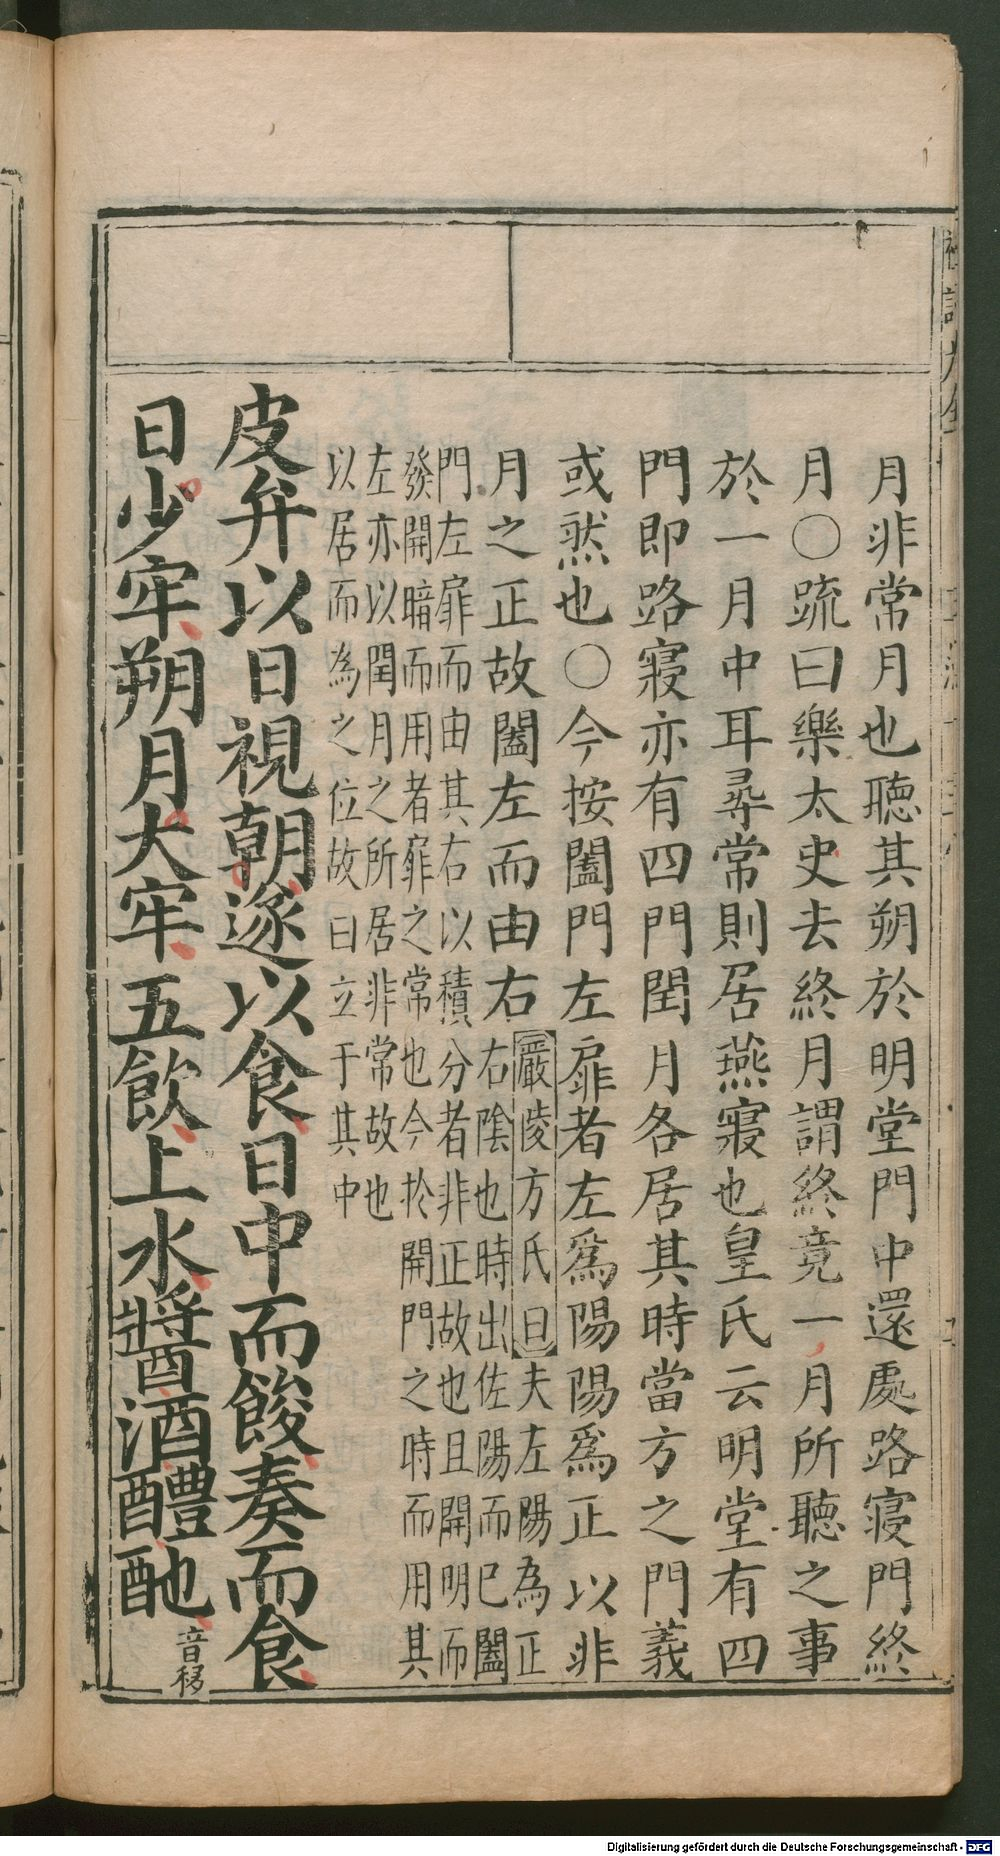 月非常月也聽其朔於明堂門中還處路寢門終
月〇疏曰樂太史去終月謂終竟一月所聽之事
於一月中耳尋常則居燕寢也皇氏云明堂有四
門即路寢亦有四門閏月各居其時當方之門義
或然也〇今按闔門左扉者左爲陽陽爲正以非
月之正故闔左而由右嚴陵方氏曰夫左陽為正
右陰也時出佐陽而已闔
門左扉而由其右以積分者非正故也且開明而
發開暗而用者扉之常也今於開門之時而用其
左亦以閏月之所居非常故也
以居而為之位故曰立于其中
皮弁以日視朝遂以食日中而餕奏而食
日少牢朔月大牢五飲上水醬酒醴酏音移
Digitalisierung gefördert durch die Deutsche Forschungsgemeinschaft - DFG